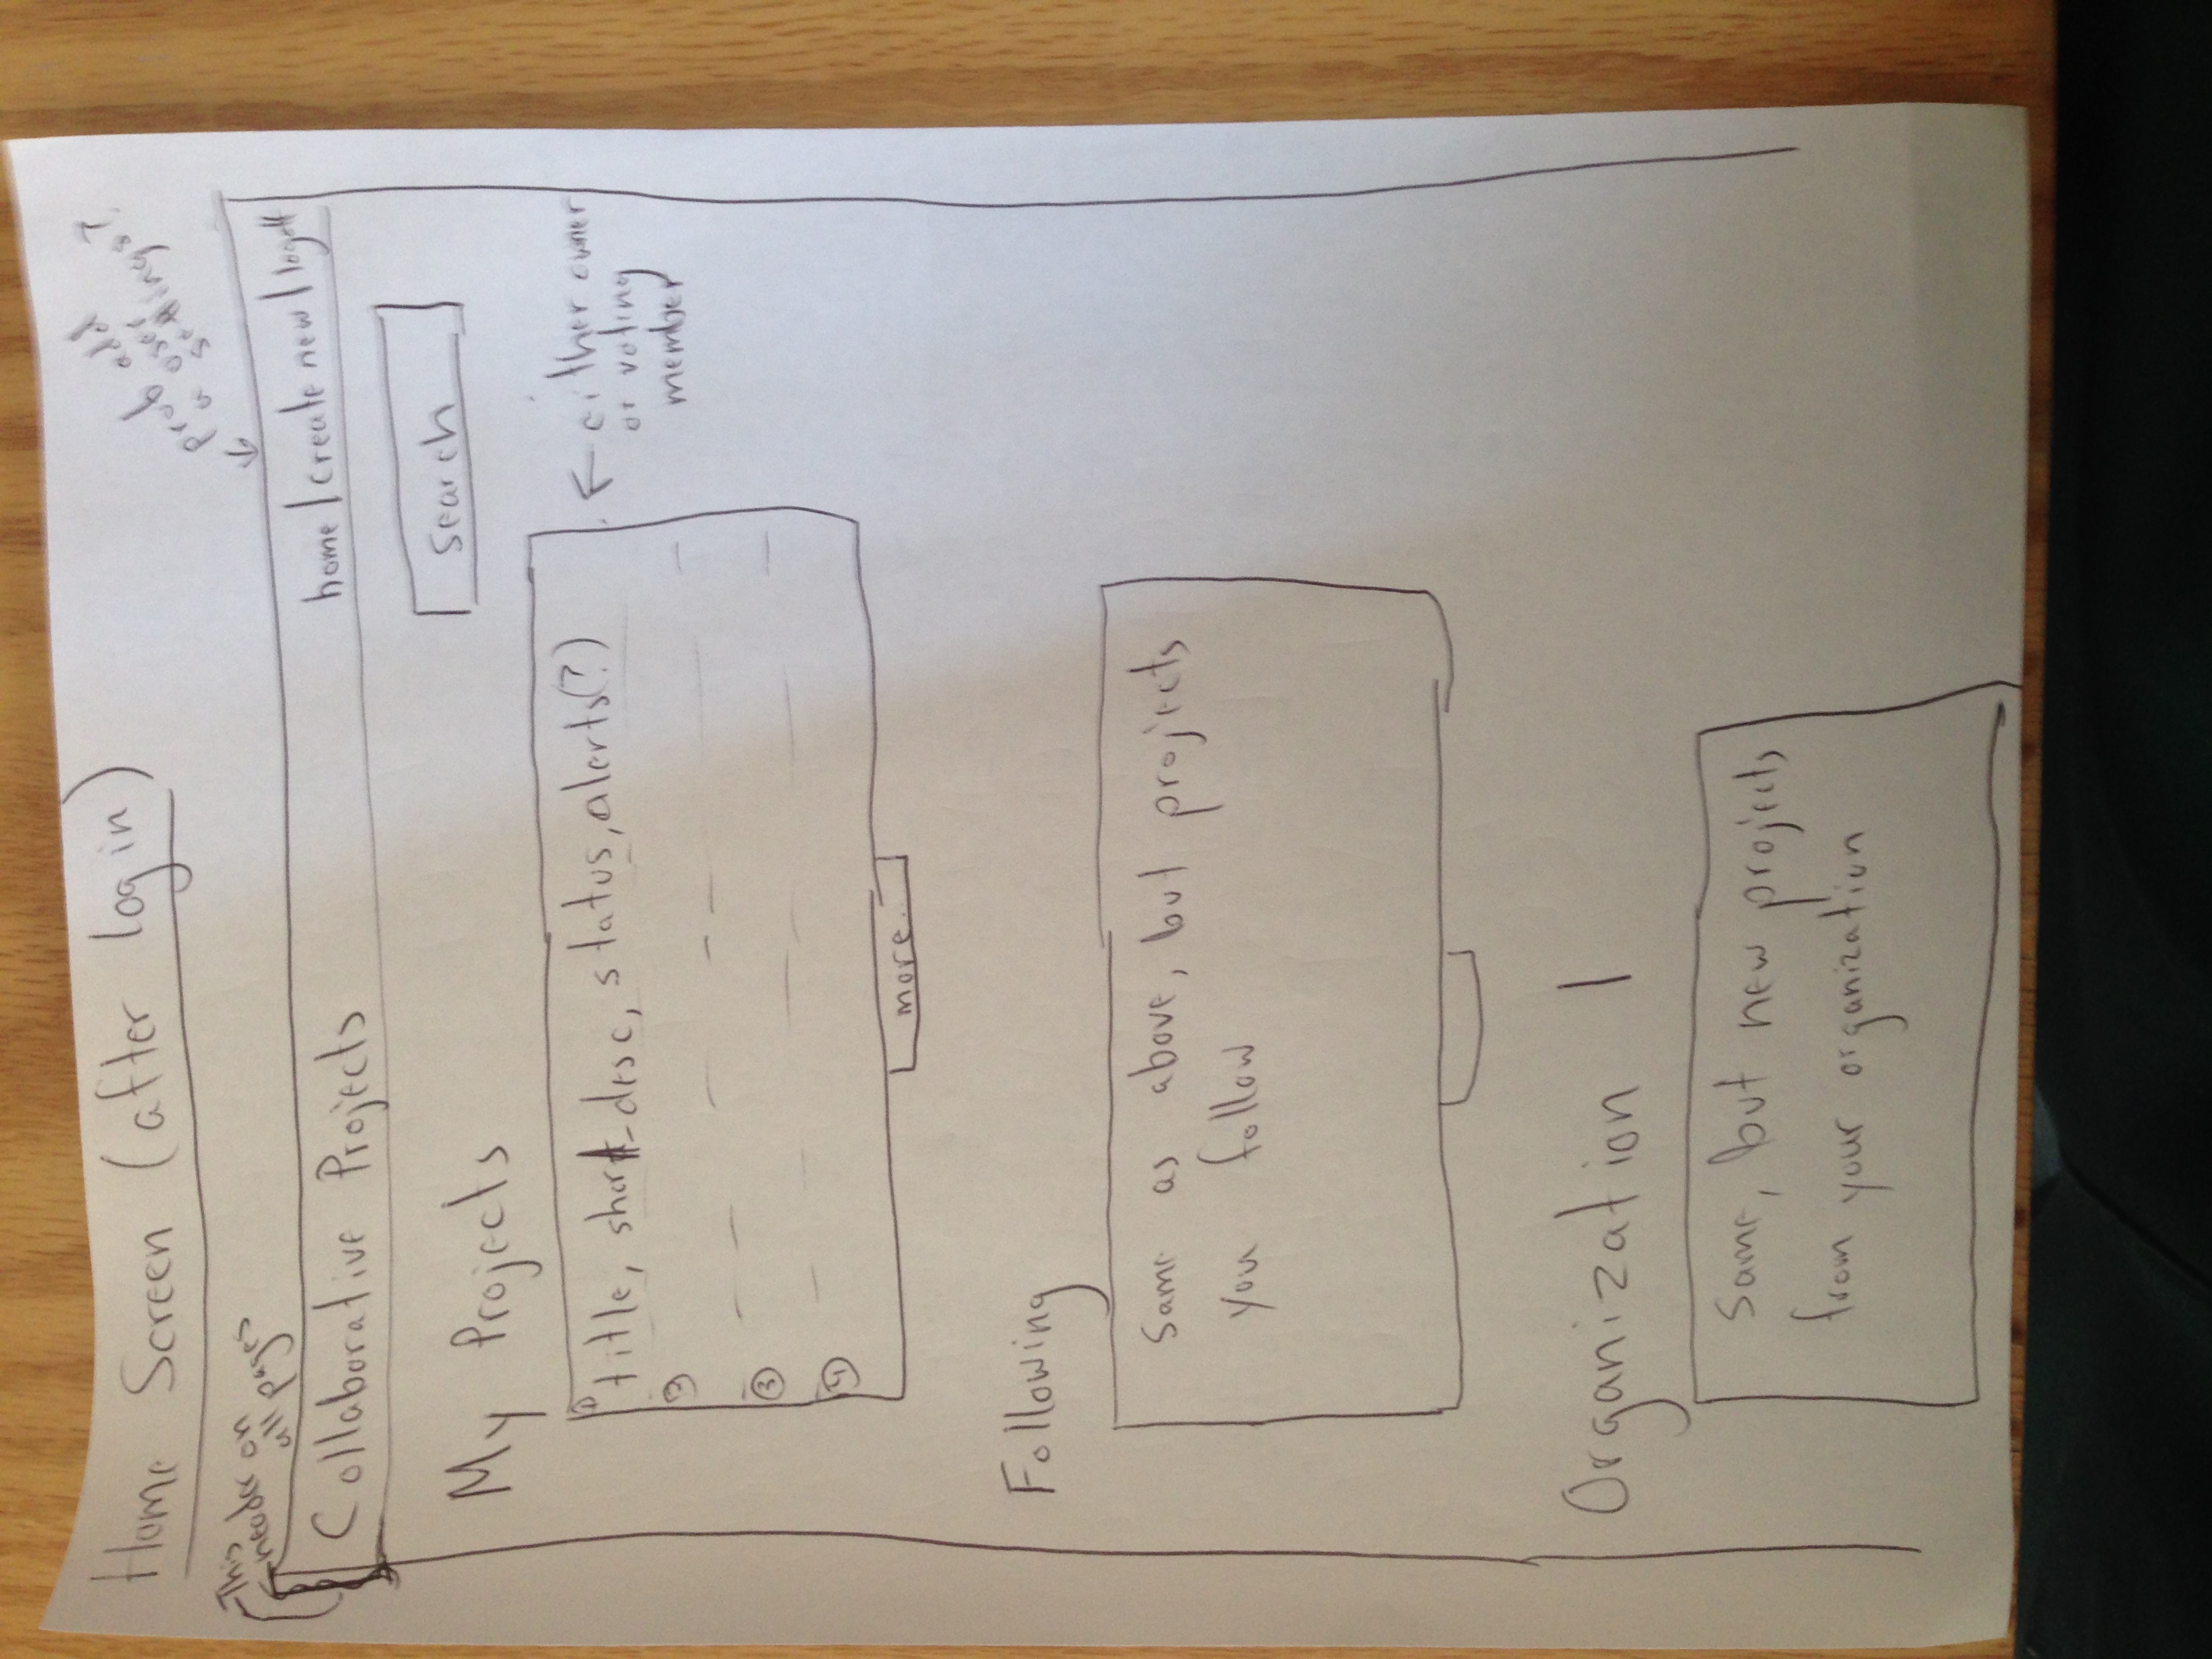 Home Screen (after log in)
prob add
a user
settings?
This
header on
all pages
Collaborative Projects
home | create new | logoff
search
My Projects
① title, short_desc, status, alerts(?)
← either owner
or voting
member
②
③
④
more..
Following
Same as above, but projects
you follow
Organization 1
Same, but new projects
from your organization